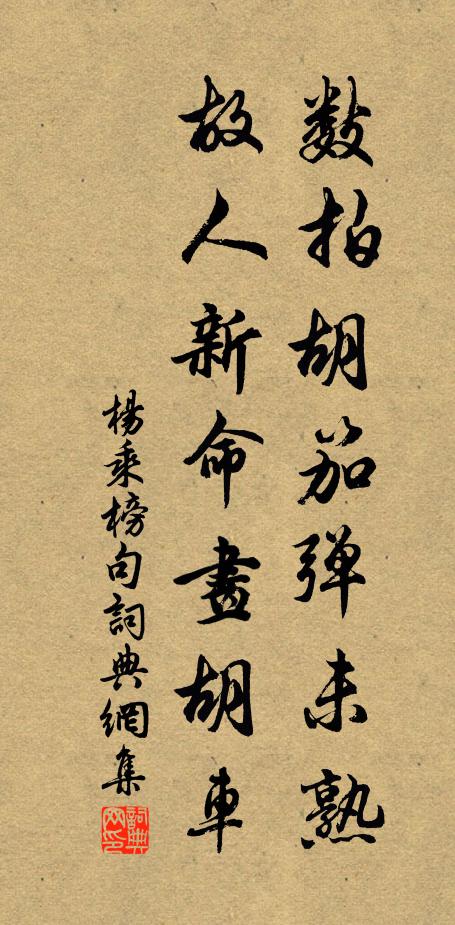 数拍胡笳彈未熟
故人新命畫胡車
楊乘榜句詞典網集
詞典网印